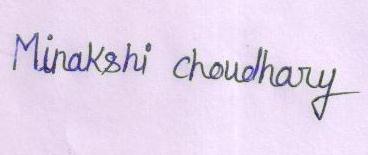 Minakshi choudhary